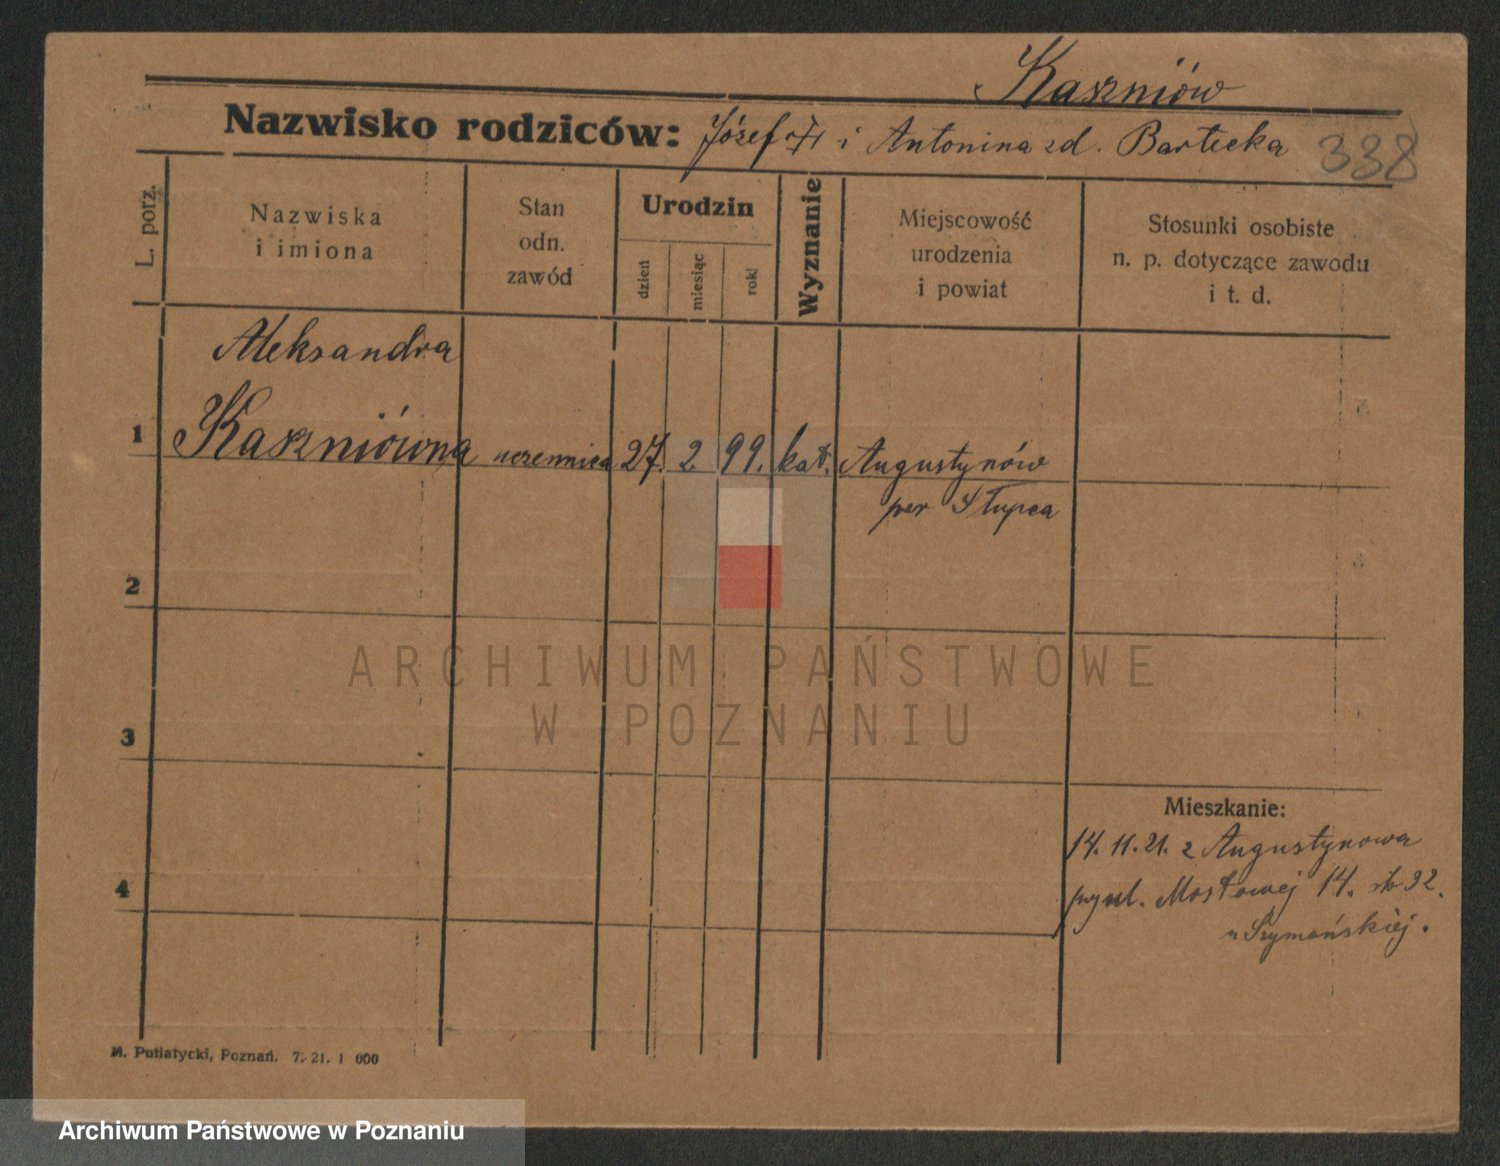 Kaszniów
Nazwisko rodziców: Józef i Antonina zd. Bartecka
338
L. porz.
Nazwiska
i imiona
Stan
odn.
zawód
Urodzin
dzień
miesiąc
rok
Wyznanie
Miejscowość
urodzenia
i powiat
Stosunki osobiste
n. p. dotyczące zawodu
i t. d.
Aleksandra
1 Kaszniówna uczennica 27. 2. 99. kat. Augustynów
pow Słupca
2
ARCHIWUM PAŃSTWOWE
W POZNANIU
3
Mieszkanie:
14. 11. 21. z Augustynowa
4
przy ul. Mostowej 14. 32.
u Szymańskiej.
M. Putiatycki, Poznań. 7. 21. 1 000
Archiwum Państwowe w Poznaniu